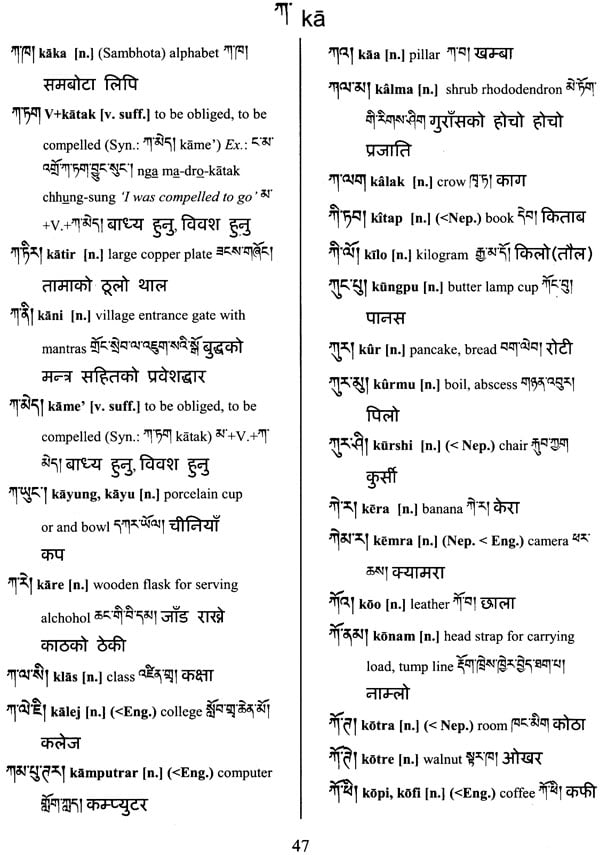 ཀ་ kā
ཀ་ཁ། kāka [n.] (Sambhota) alphabet ཀ་ཁ།
समबोटा लिपि
ཀ་ཏག V+kātak [v. suff.] to be obliged, to be
compelled (Syn.: ཀ་མེད། kāme’) Ex.: ང་མ་
འགྲོ་ཀ་ཏག་བྱུང་སུང་། nga ma-dro-kātak
chhung-sung ‘I was compelled to go’ མ་
+V.+ཀ་མེད། बाध्य हुनु, विवश हुनु
ཀ་ཏིར། kātir [n.] large copper plate ཟངས་གཞོང།
तामाको ठूलो थाल
ཀ་ནི། kāni [n.] village entrance gate with
mantras གྲོང་སྲེབ་ལ་འཇུག་སའི་སྒོ बुद्धको
मन्त्र सहितको प्रवेशद्वार
ཀ་མེད། kāme’ [v. suff.] to be obliged, to be
compelled (Syn.: ཀ་ཏག། kātak) མ་+V.+ཀ་
མེད། बाध्य हुनु, विवश हुनु
ཀ་ཡུང་། kāyung, kāyu [n.] porcelain cup
or and bowl དཀར་ཡོལ། चीनियाँ
कप
ཀ་རེ། kāre [n.] wooden flask for serving
alchohol ཆང་གི་བི་དམ། जाँड राख्ने
काठको ठेकी
ཀ་ལ་སི། klās [n.] class འཛིན་གྲ། कक्षा
ཀ་ལེ་ཇི། kālej [n.] (<Eng.) college སློབ་གྲྭ་ཆེན་མོ།
कलेज
ཀམ་པུ་ཊར། kāmputrar [n.] (<Eng.) computer
གློག་ཀླད། कम्प्युटर
ཀའ། kāa [n.] pillar ཀ་བ། खम्बा
ཀལ་མ། kâlma [n.] shrub rhododendron མེ་ཏོག་
གི་རིགས་ཤིག गुराँसको होचो होचो
प्रजाति
ཀ་ལག kâlak [n.] crow ཁྭ་ཏ། काग
ཀི་ཏབ། kîtap [n.] (<Nep.) book དེབ། किताब
ཀི་ལོ། kîlo [n.] kilogram རྒྱ་མ་དོ། किलो(तौल)
ཀུང་པུ། kūngpu [n.] butter lamp cup ཀོང་བུ།
पानस
ཀུར། kûr [n.] pancake, bread བག་ལེབ། रोटी
ཀུར་མུ། kûrmu [n.] boil, abscess གཉན་འབུར།
पिलो
ཀུར་ཤི། kūrshi [n.] (< Nep.) chair རྐུབ་ཀྱག
कुर्सी
ཀེ་ར། kēra [n.] banana ཀེ་ར། केरा
ཀེམ་ར། kēmra [n.] (Nep. < Eng.) camera པར་
ཆས། क्यामरा
ཀོའ། kōo [n.] leather ཀོ་བ། छाला
ཀོ་ནམ། kōnam [n.] head strap for carrying
load, tump line རྡོག་ཁྲེས་ཁྱེར་བྱེད་ཐག་པ།
नाम्लो
ཀོ་ཊ། kōtra [n.] (< Nep.) room ཁང་མིག कोठा
ཀོ་ཊེ། kōtre [n.] walnut སྟར་ཁ། ओखर
ཀོ་ཕི། kōpi, kōfi [n.] (<Eng.) coffee ཀོ་ཕི། कफी
47